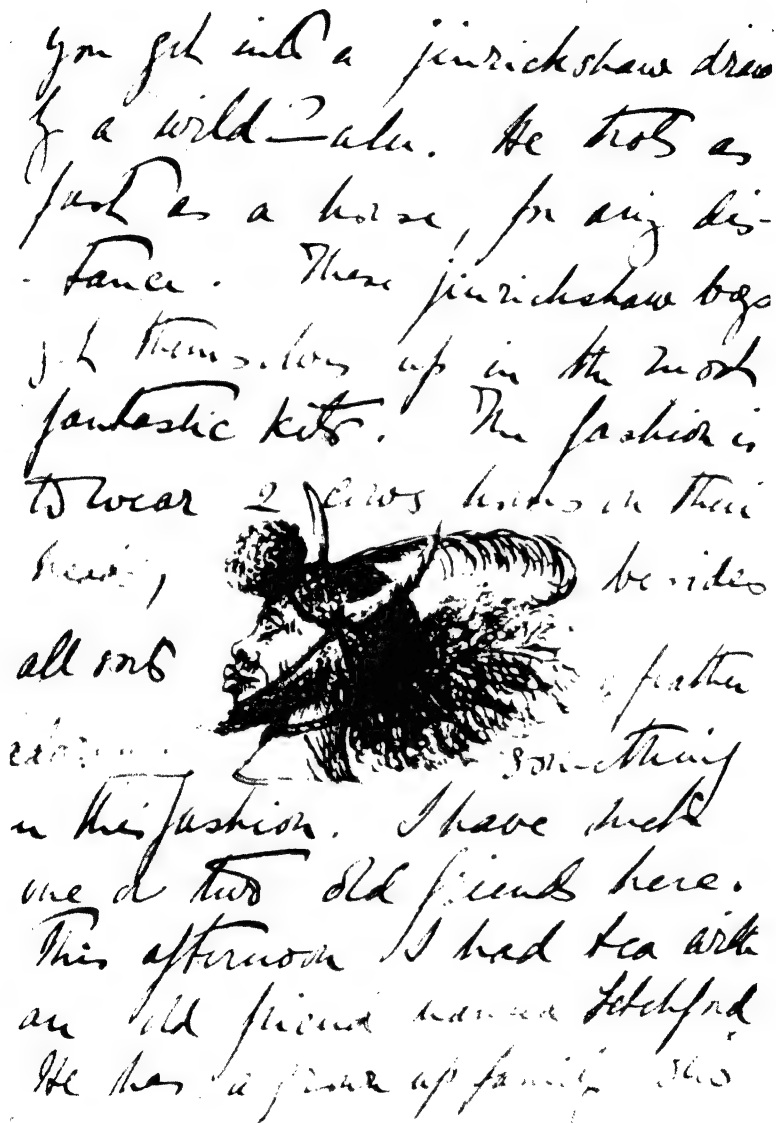 you get into a jinrickshaw drawn
by a wild Zulu. He trots as
fast as a horse, for any dis-
-tance. These jinrickshaw boys
get themselves up in the most
fantastic kits. The fashion is
to wear 2 cows horns on their
heads, besides
all sorts of feather
something
in this fashion. I have met
one or two old friends here.
This afternoon I had tea with
an old friend named
He has a grown up family